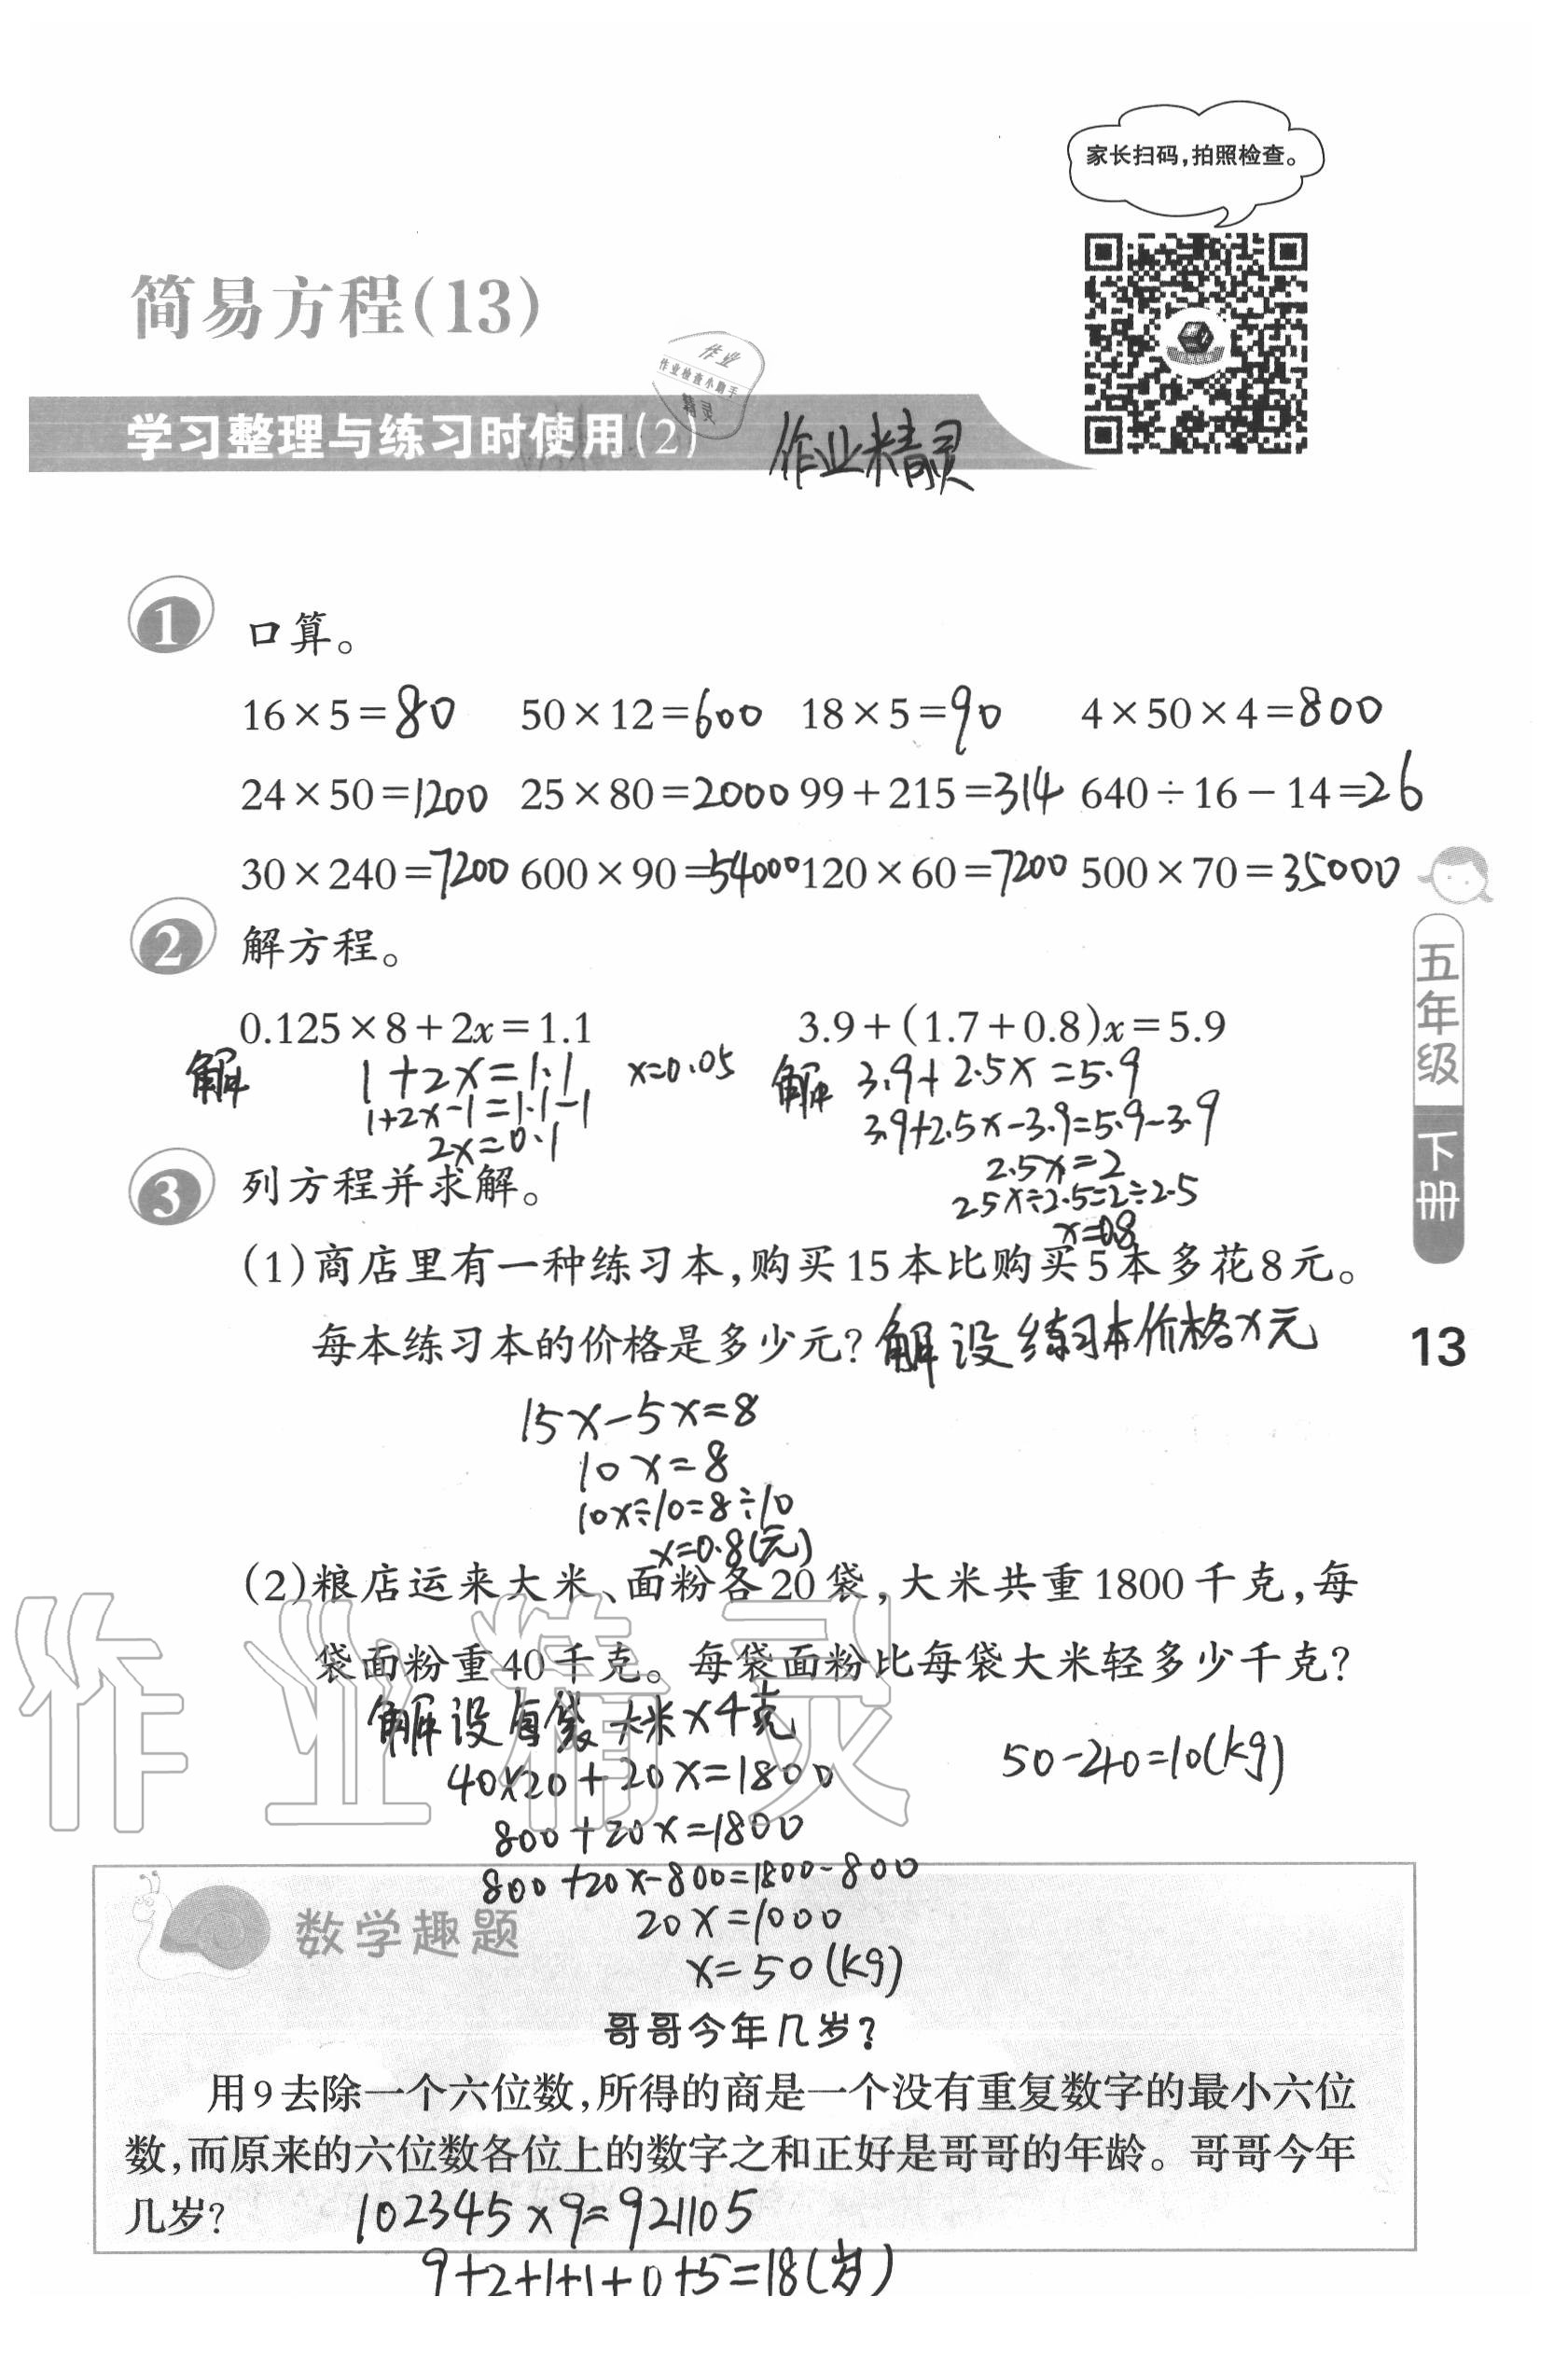 家长扫码,拍照检查。
简易方程(13)
作业
作业检查小助手
精灵
学习整理与练习时使用(2)
作业精灵
1 口算。
16×5=80 50×12=600 18×5=90 4×50×4=800
24×50=1200 25×80=2000 99+215=314 640÷16-14=26
30×240=7200 600×90=54000 120×60=7200 500×70=35000
2 解方程。
0.125×8+2x=1.1 3.9+(1.7+0.8)x=5.9
解 1+2x=1.1 x=0.05 解 3.9+2.5x=5.9
1+2x-1=1.1-1 3.9+2.5x-3.9=5.9-3.9
2x=0.1 2.5x=2
2.5x÷2.5=2÷2.5
x=0.8
3 列方程并求解。
(1)商店里有一种练习本,购买15本比购买5本多花8元。
每本练习本的价格是多少元? 解 设 练习本价格x元
15x-5x=8
10x=8
10x÷10=8÷10
x=0.8(元)
(2)粮店运来大米、面粉各20袋,大米共重1800千克,每
袋面粉重40千克。每袋面粉比每袋大米轻多少千克?
解 设 每袋大米x千克
40×20+20x=1800 50-40=10(kg)
800+20x=1800
800+20x-800=1800-800
20x=1000
x=50(kg)
五年级 下册
13
作业精灵
数学趣题
哥哥今年几岁?
用9去除一个六位数,所得的商是一个没有重复数字的最小六位
数,而原来的六位数各位上的数字之和正好是哥哥的年龄。哥哥今年
几岁? 102345×9=921105
9+2+1+1+0+5=18(岁)